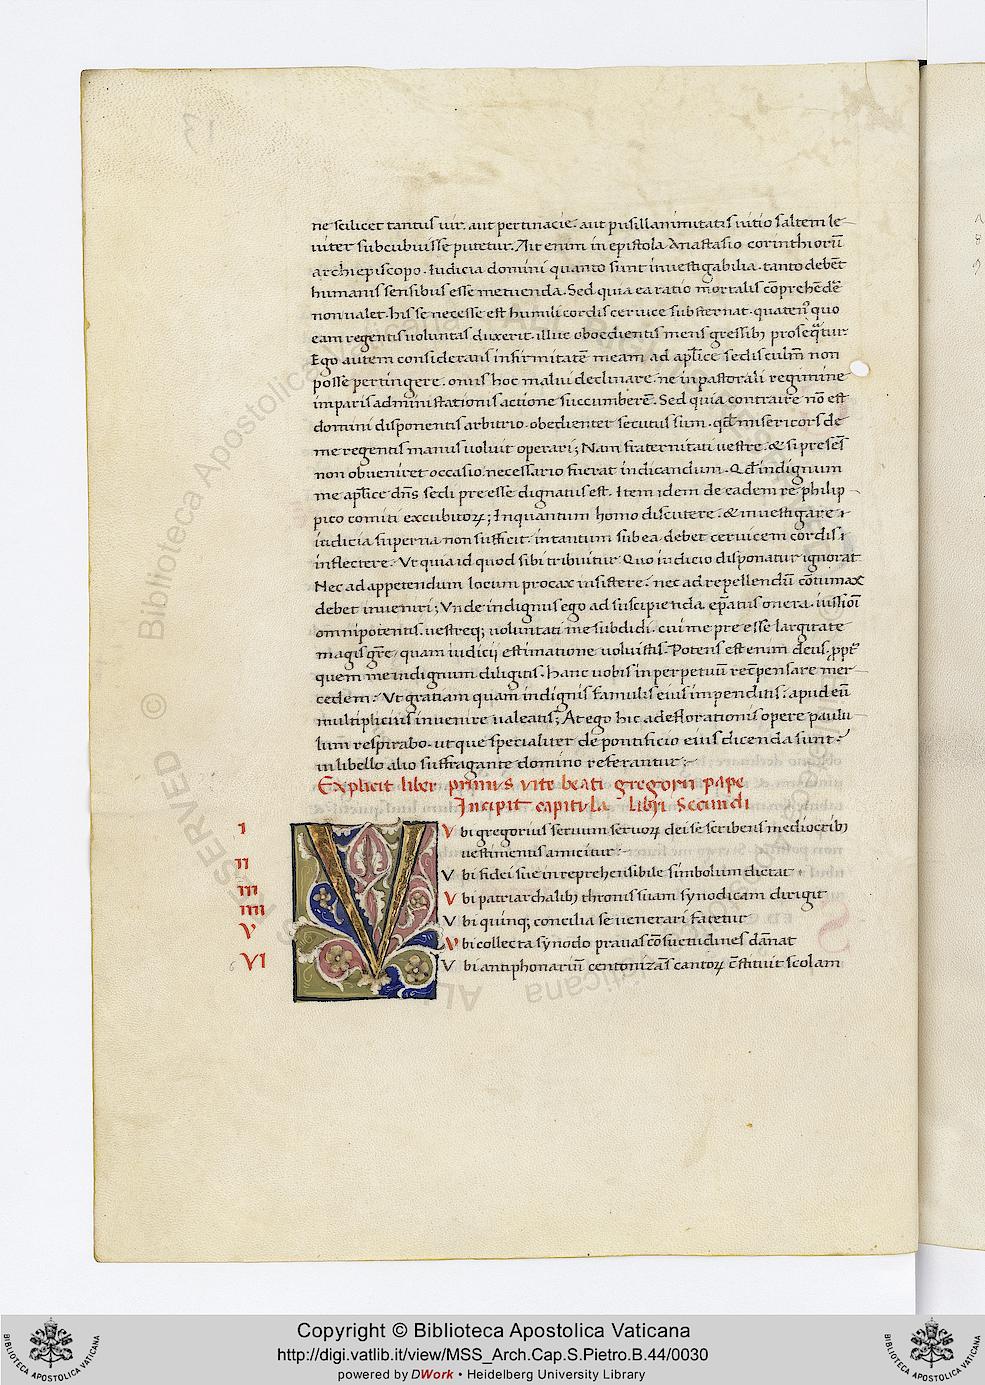 ne scilicet tantus uir. aut pertinacie. aut pusillanimitatis uitio saltem le-
uiter subcubuisse putetur. Ait enim in epistola Anastasio corinthioru̅
archiepiscopo. Iudicia domini quanto sunt inuestigabilia. tanto debe̅t
humanis sensibus esse metuenda. Sed quia ea ratio mortalis co̅prehe̅de̅
non ualet. his se necesse est humili cordis ceruice substernat. quaten⁹ quo
eam regentis uoluntas duxerit. illuc oboedientis mens gressib; proseq̅tur.
Ego autem considerans infirmitate̅ meam ad apl̅ice sedis culm̅ non
posse pertingere. onus hoc malui declinare. ne in pastorali regimine
imparis administrationis actione succumbere̅. Sed quia contraire no̅ est
domini disponentis arbitrio. obedienter secutus sum. qd̅ misericors de
me regentis manus uoluit operari; Nam fraternitati uestre. & si prese̅s
non obueniret occasio. necessario fuerat indicandum. Qd̅ indignum
me apl̅ice dn̅s sedi preesse dignatus est. Item idem de eadem re philip-
pico comiti excubitoꝝ; Inquantum homo discutere. & inuestigare
iudicia superna non sufficit. in tantum sub ea debet ceruicem cordis
inflectere. Ut quia id quod sibi tribuitur. Quo iudicio disponatur ignorat.
Nec ad appetendum locum procax insistere. nec ad repellendu̅ co̅tumax
debet inueniri; Vnde indignus ego ad suscipienda ep̅atus onera. iussioi̅
omnipotentis. uestreq; uoluntati me subdidi. cui me preesse largitate
magis gr̅e, quam iudicij estimatione uoluistis. Potens est enim deus, ꝓpt̅
quem me indignum diligitis. Hanc uobis in perpetuu̅ rec̅pensare mer-
cedem. Ut gratiam quam indignis famulis eius impenditis. apud eu̅
multiplicius inuenire ualeatis; At ego hic a deflorationis opere paulu-
lum respirabo. ut que specialiter de pontificio eius dicenda sunt.
in libello alio suffragante domino referantur;
Explicit liber primus vite beati gregorii pape
Incipit capitula libri secundi
I Vbi gregorius seruum seruoꝝ dei se scribens mediocrib;
uestimentis amicitur.
II Vbi fidei sue inreprehensibile simbolum dictat.
III Vbi patriarchalib; thronis suam synodicam dirigit
IIII Vbi quinq; concilia se uenerari fatetur
V Vbi collecta synodo prauas co̅suetudines da̅nat
VI Vbi antiphonariu̅ centoniza̅s cantoꝝ c̅stituit scolam
RESERVED © Biblioteca Apostolica Vaticana
Copyright © Biblioteca Apostolica Vaticana
http://digi.vatlib.it/view/MSS_Arch.Cap.S.Pietro.B.44/0030
powered by DWork • Heidelberg University Library
BIBLIOTECA APOSTOLICA VATICANA
BIBLIOTECA APOSTOLICA VATICANA